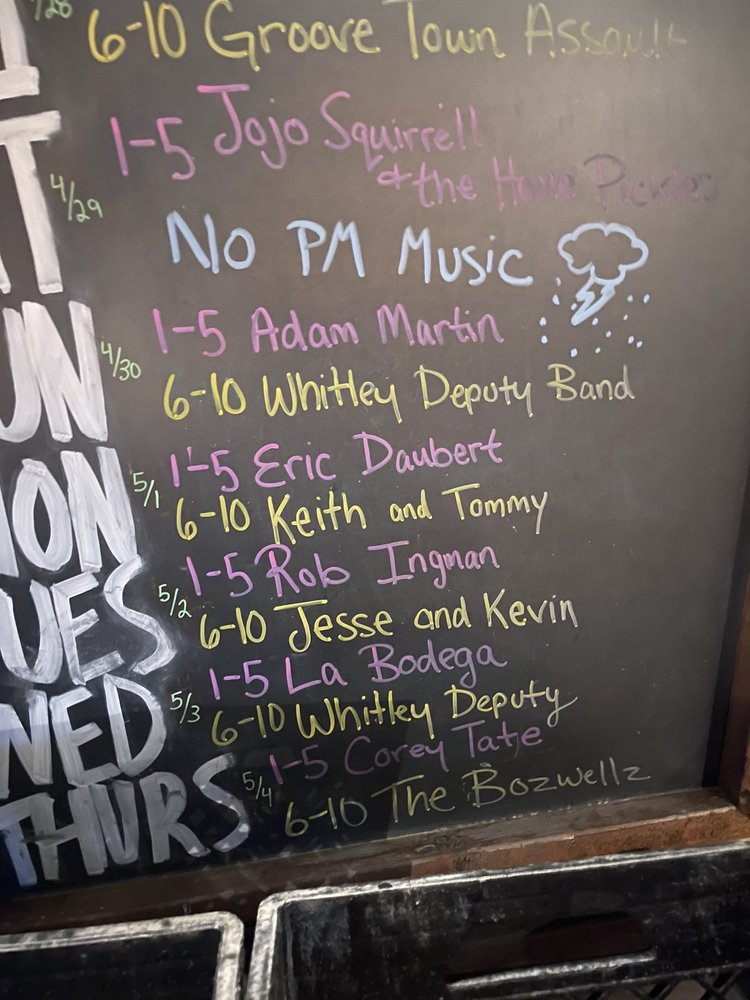 /28
6-10 Groove Town Assault
1-5 Jojo Squirrell
& the Home Pickles
4/29
No PM Music
UN
4/30
1-5 Adam Martin
6-10 Whitley Deputy Band
ON
5/1
1-5 Eric Daubert
6-10 Keith and Tommy
UES
5/2
1-5 Rob Ingman
6-10 Jesse and Kevin
NED
5/3
1-5 La Bodega
6-10 Whitley Deputy
THURS
5/4
1-5 Corey Tate
6-10 The Bozwellz